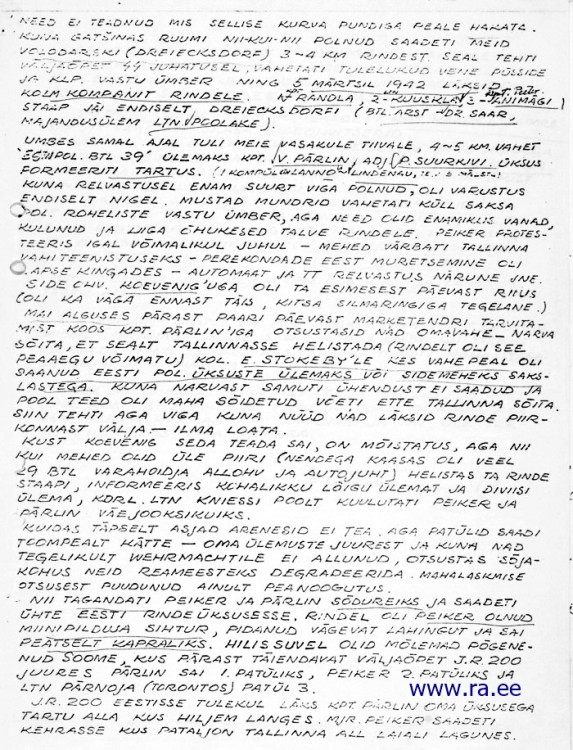 NEED EI TEADNUD MIS SELLISE KURVA PUNDIGA PEALE HAKATA.
KUNA GATŠINAS RUUMI NII-KUI-NII POLNUD SAADETI MEID
VOLODARSKI (DREIECKSDORF) 3-4 KM RINDEST. SEAL TEHTI
VÄLJAÕPET 44 JUHATUSEL, VAHETATI TULELUKUD VENE PÜSSIDE
JA KLP. VASTU ÜMBER NING 5 MÄRTSIL 1942 LÄKSID
KOLM KOMPANIT RINDELE. RANDLA, 2- KUUSKLA, 3- TÄNIMÄGI)
STAAP JÄI ENDISELT DREIECKSDORFI (BTL. ARST DR. SAAR,
MAJANDUSÜLEM LTN POOLAKE).
UMBES SAMAL AJAL TULI MEIE VASAKULE TIIVALE, 4-5 KM. VAHET
POL. BTL 39" ÜLEMAKS KPT. V. PÄRLIN, ADJ P. SUURKIVI. ÜKSUS
FORMEERITI TARTUS. (1 KOMP. LINDENAU,
KUNA RELVASTUSEL ENAM SUURT VIGA POLNUD, OLI VARUSTUS
ENDISELT NIGEL. MUSTAD MUNDRID VAHETATI KÜLL SAKSA
POL. ROHELISTE VASTU ÜMBER, AGA NEED OLID ENAMIKUS VANAD,
KULUNUD JA LIIGA ÕHUKESED TALVE RINDELE. PEIKER PROTES-
TEERIS IGAL VÕIMALIKUL JUHUL - MEHED VÄRBATI TALLINNA
VAHITEENISTUSEKS - PEREKONDADE EEST MURETSEMINE OLI
LAPSE KINGADES - AUTOMAAT JA TT RELVASTUS NÄRUNE JNE.
SIDE OHV. KOEVENIG'UGA, OLI TA ESIMESEST PÄEVAST RIIUS
(OLI KA VÄGA ENNAST TÄIS, KITSA SILMARINGIGA TEGELANE.)
MAI ALGUSES PÄRAST PAARI PÄEVAST MARKETENDRI TARVITA-
MIST KOOS KPT. PÄRLIN'IGA OTSUSTASID NAD OMAVAHE - NARVA
SÕITA, ET SEALT TALLINNASSE HELISTADA (RINDELT OLI SEE
PEAAEGU VÕIMATU) KOL. E. STOKEBY'LE KES VAHEPEAL OLI
SAANUD EESTI POL. ÜKSUSTE ÜLEMAKS VÕI SIDEMEHEKS SAKS-
LASTEGA. KUNA NARVAST SAMUTI ÜHENDUST EI SAADUD JA
POOL TEED OLI MAHA SÕIDETUD VÕETI ETTE TALLINNA SÕITA.
SIIN TEHTI AGA VIGA KUNA NÜÜD NAD LÄKSID RINDE PIIR-
KONNAST VÄLJA - ILMA LOATA.
KUST KOEVENIG SEDA TEADA SAI, ON MÕISTATUS, AGA NII
KUI MEHED OLID ÜLE PIIRI (NENDEGA KAASAS OLI VEEL
29 BTL VARAHOIDJA ALLOHU JA AUTOJUHT) HELISTAS TA RINDE
STAAPI, INFORMEERIS KOHALIKKU LÕIGU ÜLEMAT JA DIVIISI
ÜLEMA, KDRL. LTN KNIESSI POOLT KUULUTATI PEIKER JA
PÄRLIN VÄEJOOKSIKUIKS.
KUIDAS TÄPSELT ASJAD ARENESID EI TEA. AGA PATÜLID SAADI
TOOMPEALT KÄTTE - OMA ÜLEMUSTE JUUREST JA KUNA NAD
TEGELIKULT WEHRMACHTILE EI ALLUNUD, OTSUSTAS SÕJA-
KOHUS NEID REAMEESTEKS DEGRADEERIDA. MAHALASKMISE
OTSUSEST PUUDUNUD AINULT PEANOOGUTUS.
NII TAGANDATI PEIKER JA PÄRLIN SÕDUREIKS JA SAADETI
ÜHTE EESTI RINDEÜKSUSESSE. RINDEL OLI PEIKER OLNUD
MIINIPILDUJA SIHTUR, PIDANUD VÄGEVAT LAHINGUT JA SAI
PEATSELT KAPRALIKS. HILISSUVEL OLID MÕLEMAD PÕGENE-
NUD SOOME, KUS PÄRAST TÄIENDAVAT VÄLJAÕPET J.R. 200
JUURES PÄRLIN SAI 1. PATÜLIKS, PEIKER 2. PATÜLIKS JA
LTN PÄRNOJA (TORONTOS) PATÜL 3.
www.ra.ee
J.R. 200 EESTISSE TULEKUL LÄKS KPT. PÄRLIN OMA ÜKSUSEGA
TARTU ALLA KUS HILJEM LANGES. MJR. PEIKER SAADETI
KEHRASSE KUS PATALJON TALLINNA ALL LAIALI LAGUNES.